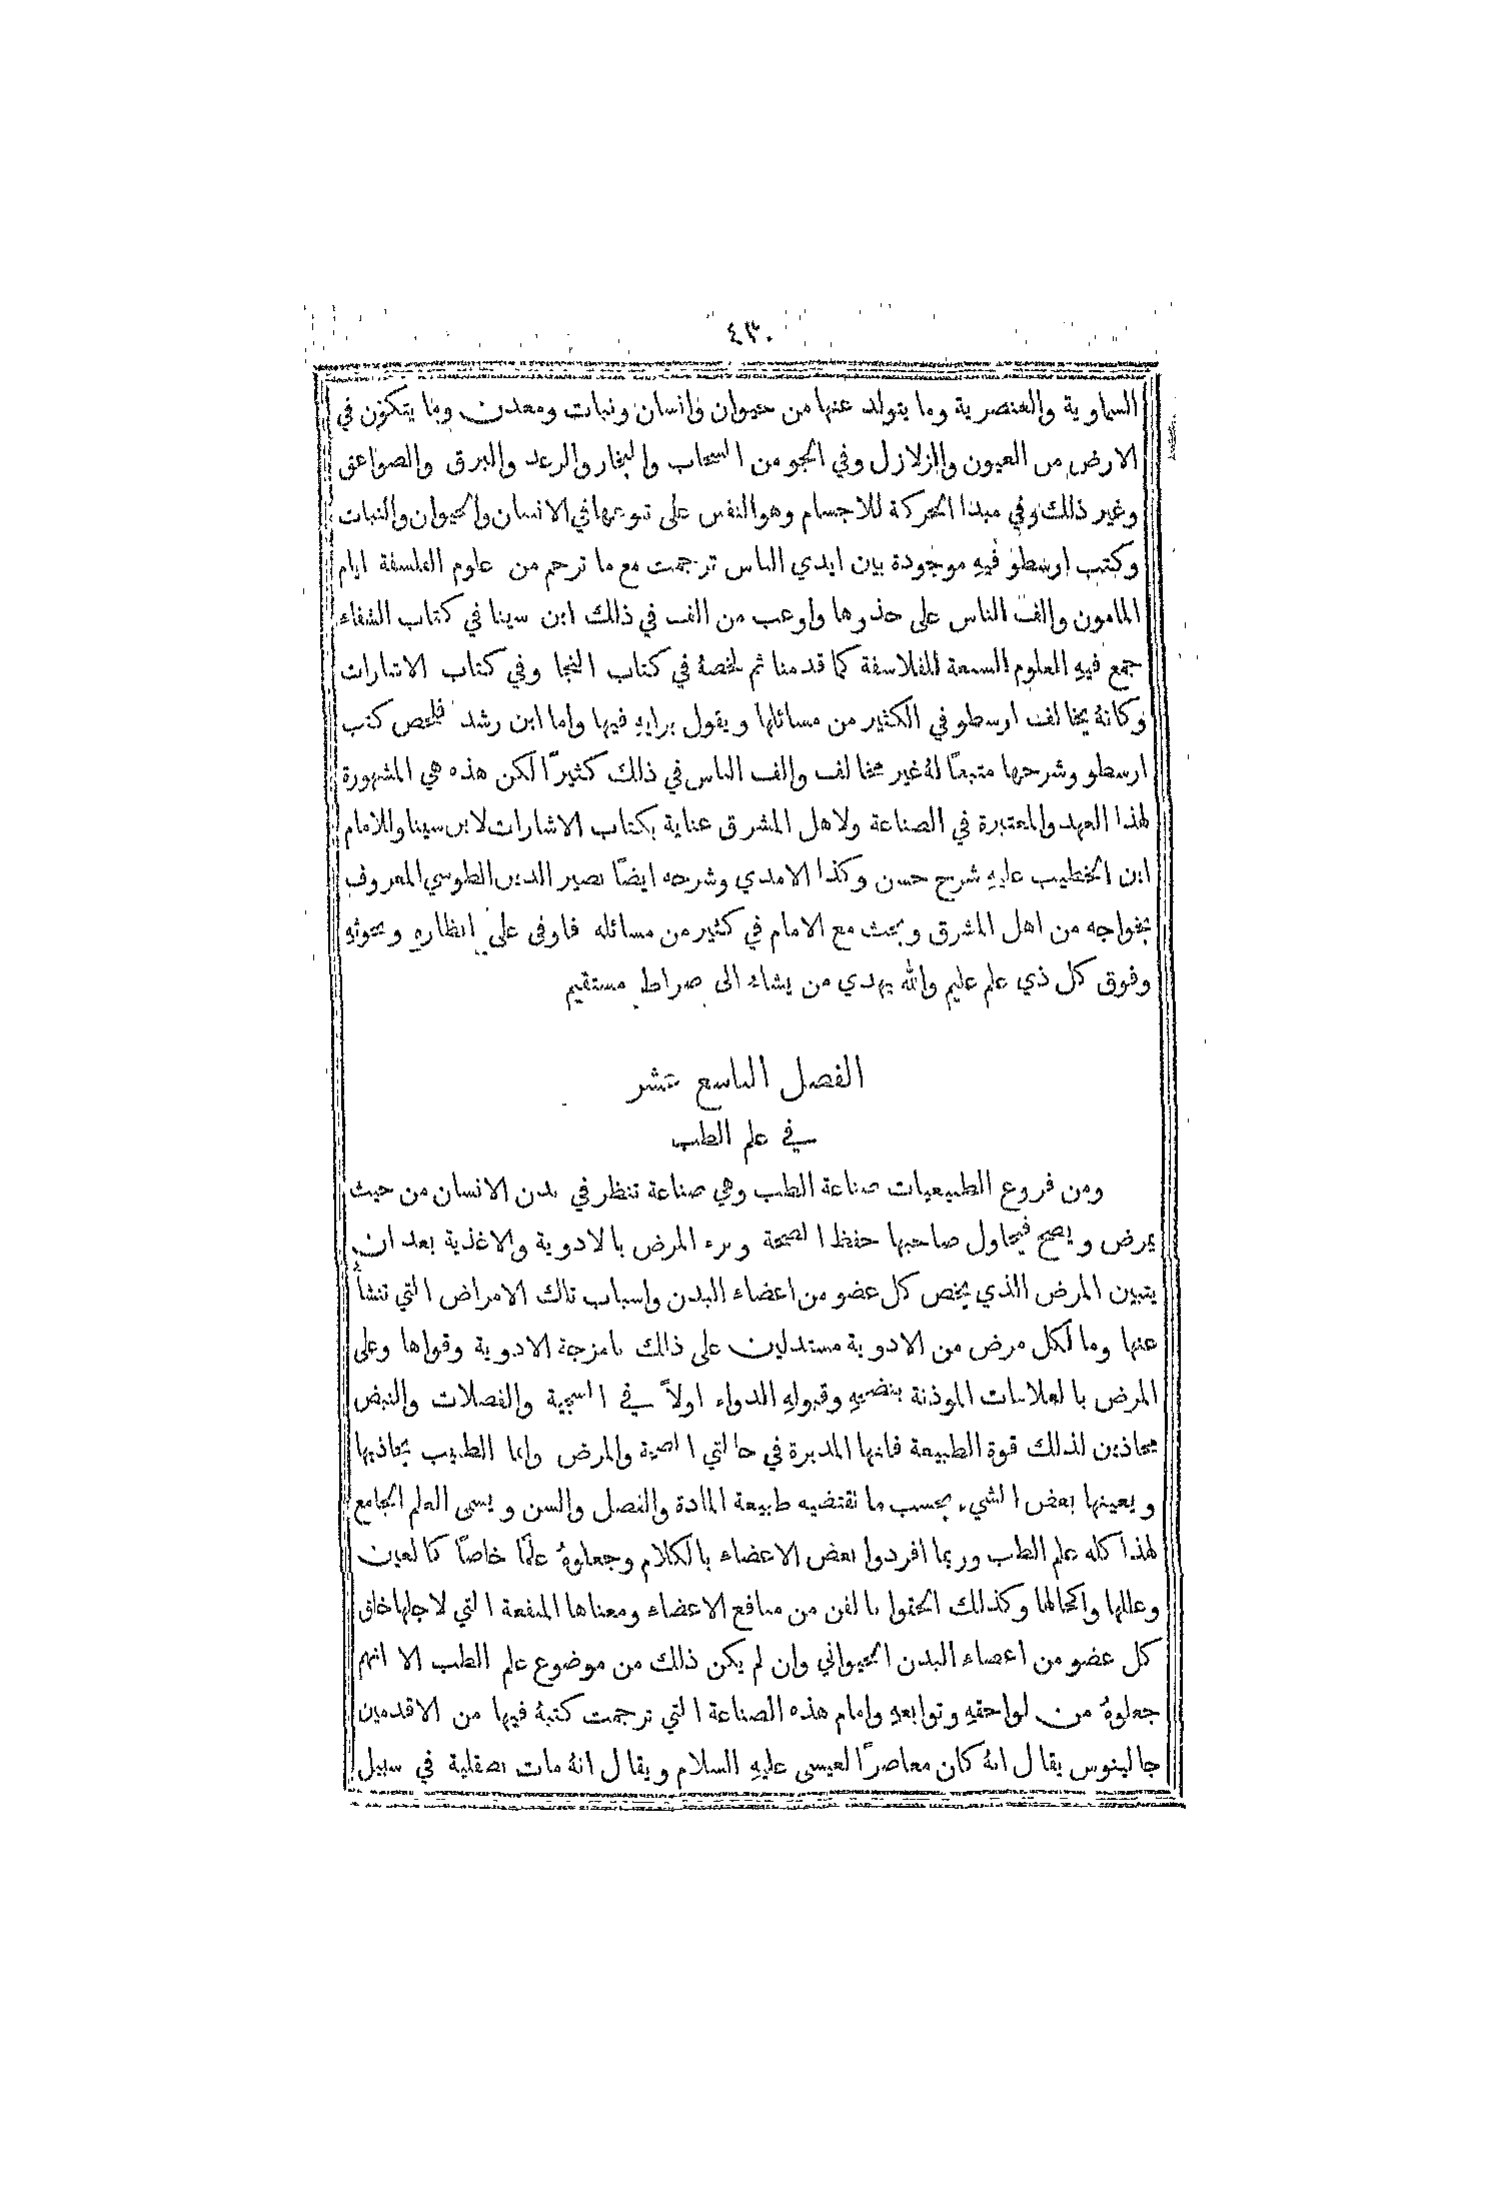 ٤٣٠
السماوية والعنصرية وما يتولد عنها من حيوان وانسان ونبات ومعدن وما يتكون في
الارض من العيون والزلازل وفي الجو من السحاب والبخار والرعد والبرق والصواعق
وغير ذلك وفي مبدا الحركة للاجسام وهو النفس على تنوعها في الانسان والحيوان والنبات
وكتب ارسطو فيهِ موجودة بين ايدي الناس ترجمت مع ما ترجم من علوم الفلسفة ايام
المامون والف الناس على حذوها واوعب من الف في ذلك ابن سينا في كتاب الشفاء
جمع فيهِ العلوم السبعة للفلاسفة كما قدمنا ثم لخصهُ في كتاب النجا وفي كتاب الاشارات
وكانهُ يخالف ارسطو في الكثير من مسائلها ويقول برايهِ فيها واما ابن رشد فلخص كتب
ارسطو وشرحها متبعًا لهُ غير مخالف والف الناس في ذلك كثيرًا لكن هذه هي المشهورة
لهذا العهد والمعتبرة في الصناعة ولاهل المشرق عناية بكتاب الاشارات لابن سينا وللامام
ابن الخطيب عليهِ شرح حسن وكذا الامدي وشرحه ايضًا نصير الدين الطوسي المعروف
بخواجه من اهل المشرق وبحث مع الامام في كثير من مسائله فاوفى على انظارهِ وبحوثهِ
وفوق كل ذي علم عليم والله يهدي من يشاء الى صراط مستقيم
الفصل التاسع عشر
في علم الطب
ومن فروع الطبيعيات صناعة الطب وهي صناعة تنظر في بدن الانسان من حيث
يمرض ويصح فيحاول صاحبها حفظ الصحة وبرء المرض بالادوية والاغذية بعد ان
يتبين المرض الذي يخص كل عضو من اعضاء البدن واسباب تلك الامراض التي تنشأ
عنها وما لكل مرض من الادوية مستدلين على ذلك بامزجة الادوية وقواها وعلى
المرض بالعلامات الموذنة بنضجهِ وقبولهِ الدواء اولاً في السجية والفضلات والنبض
محاذين لذلك قوة الطبيعة فانها المدبرة في حالتي الصحة والمرض وانما الطبيب يحاذيها
ويعينها بعض الشيء بحسب ما تقتضيه طبيعة المادة والفصل والسن ويسمى العلم الجامع
لهذا كله علم الطب وربما افردوا بعض الاعضاء بالكلام وجعلوهُ علمًا خاصًا كالعين
وعللها واكحالها وكذلك الحقوا بالفن من منافع الاعضاء ومعناها المنفعة التي لاجلها خلق
كل عضو من اعضاء البدن الحيواني وان لم يكن ذلك من موضوع علم الطب الا انهم
جعلوهُ من لواحقهِ وتوابعهِ وامام هذه الصناعة التي ترجمت كتبهُ فيها من الاقدمين
جالينوس يقال انهُ كان معاصرًا لعيسى عليهِ السلام ويقال انهُ مات بصقلية في سبيل